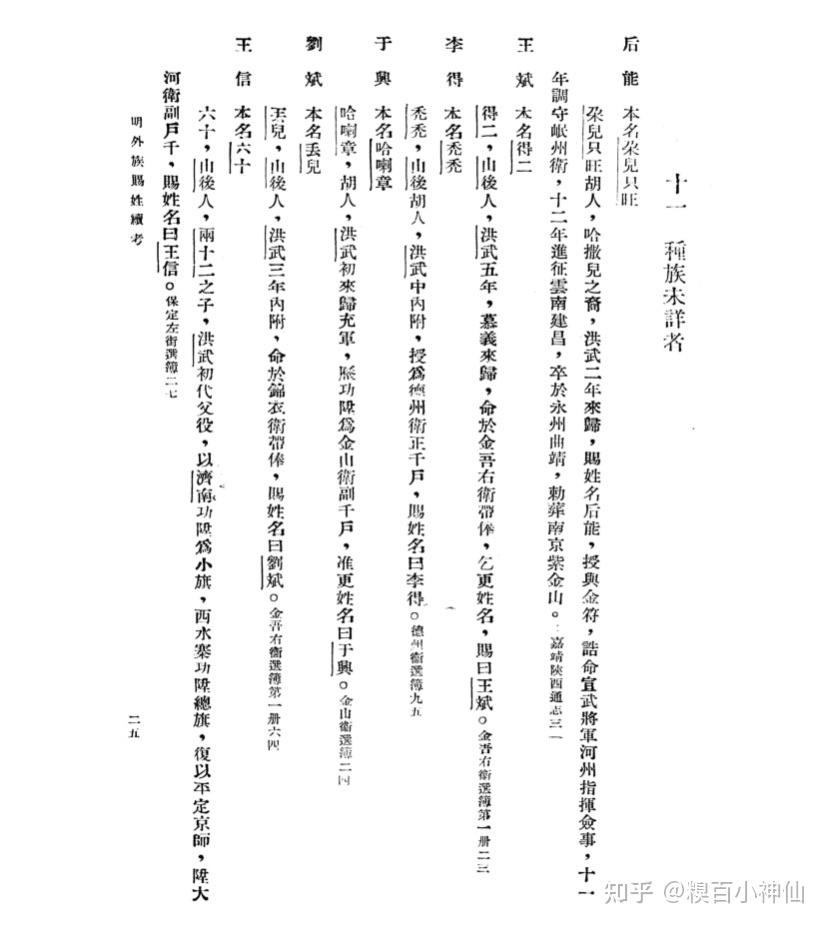 十一 種族未詳者
后能 本名朶兒只旺
朶兒只旺胡人，哈撒兒之裔，洪武二年來歸，賜姓名后能，授與金符，誥命宣武將軍河州指揮僉事，十一
年調守岷州衛，十二年進征雲南建昌，卒於永州曲靖，勅葬南京紫金山。嘉靖陝西通志三一
王斌 本名得二
得二，山後人，洪武五年，慕義來歸，命於金吾右衛帶俸，乞更姓名，賜曰王斌。金吾右衛選簿第一册二三
李得 本名禿禿
禿禿，山後胡人，洪武中內附，授爲德州衛正千戶，賜姓名曰李得。德州衛選簿九五
于興 本名哈喇章
哈喇章，胡人，洪武初來歸充軍，歷功陞爲金山衛副千戶，准更姓名曰于興。金山衛選簿二四
劉斌 本名丟兒
丟兒，山後人，洪武三年內附，命於錦衣衛帶俸，賜姓名曰劉斌。金吾右衛選簿第一册六四
王信 本名六十
六十，山後人，兩十二之子，洪武初代父役，以濟南功陞爲小旗，西水寨功陞總旗，復以平定京師，陞大
河衛副戶千，賜姓名曰王信。保定左衛選簿二七
明外族賜姓續考
二五
知乎 @糗百小神仙